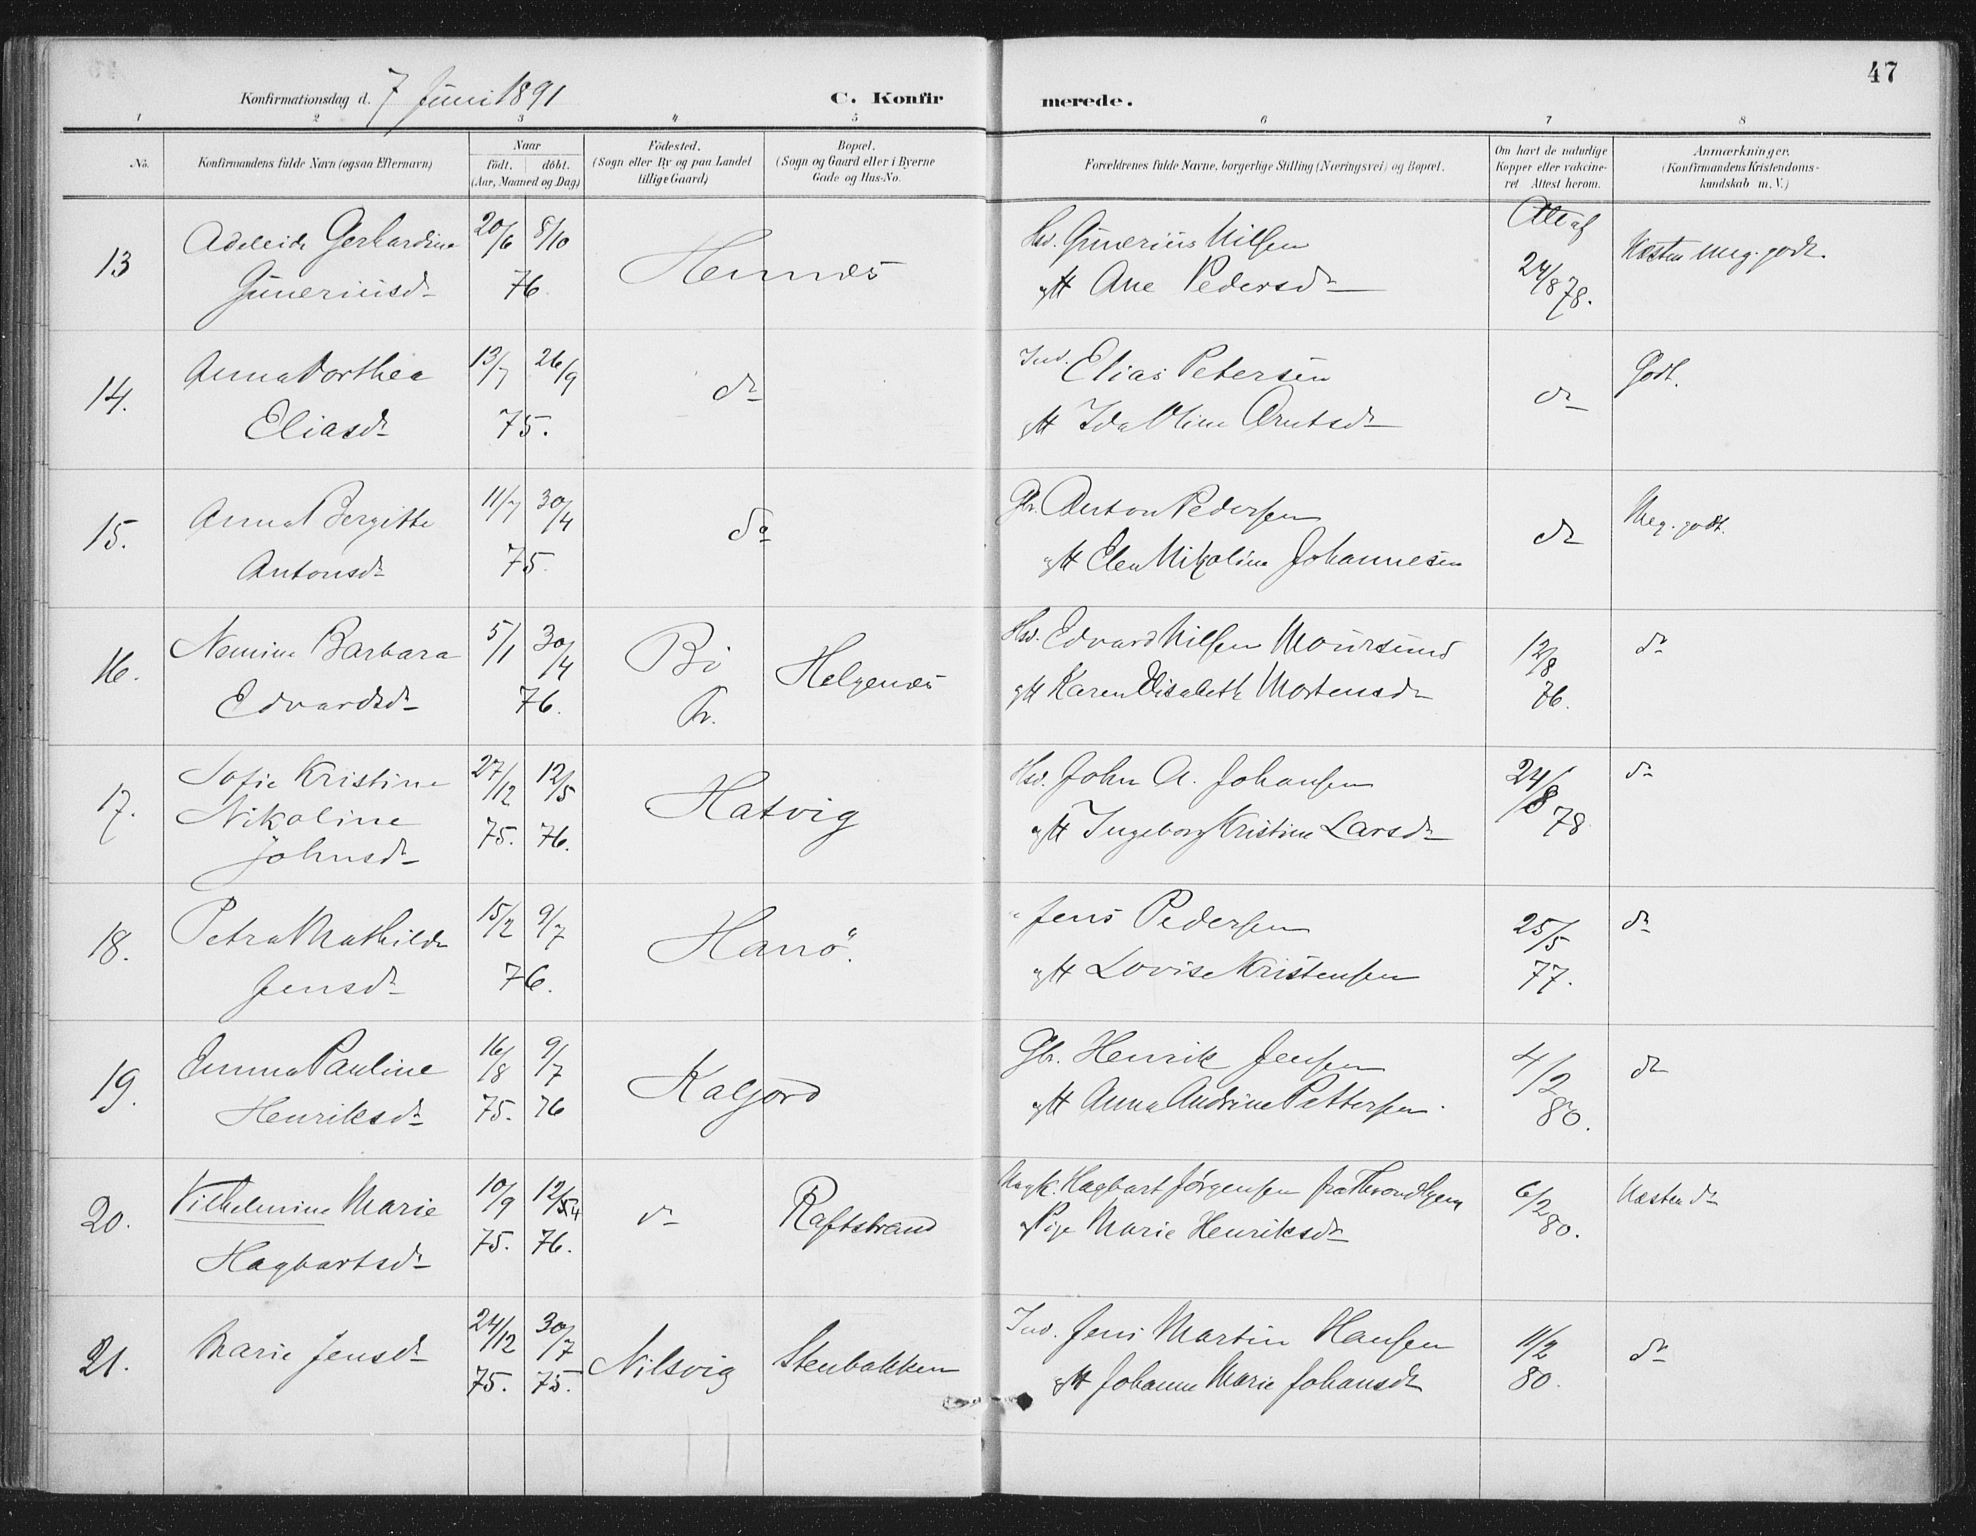 47
Konfirmationsdag d. 7 Juni 1891 C. Konfirmerede.
1 2 3 4 5 6 7 8
No. Konfirmandens fulde Navn (ogsaa Efternavn) Naar födt. döbt. (Aar, Maaned og Dag) Födested. (Sogn eller By og paa Landet tillige Gaard) Bopæl. (Sogn og Gaard eller i Byerne Gade og Hus-No. Forældrenes fulde Navne, borgerlige Stilling (Næringsvei) og Bopæl. Om havt de naturlige Kopper eller vakcineret Attest herom. Anmærkninger. (Konfirmandens Kristendomskundskab m. V.)
13 Adeleide Gerhardine 20/6 8/10 Hennes Hsd. Gunerius Nilsen Næsten Meg. godt.
Guneriusdr 76 gtt Ane Pedersdr 24/8 78.
14. Anna Dorthea 13/7 26/9 do Ind. Elias Petersen do Godt.
Eliasdr 75. gtt Ida Oline Arntsdr
15. Anna Bergitte 11/7 30/4 do Gbr. Anton Pedersen do Meg. godt.
Antonsdr 75. gtt Elen Nikoline Johannesen
16. Nomine Barbara 5/1 30/4 Bö Helgenes Hsd. Edvard Nilsen Moursund 12/8 do
Edvardsdr 76. Pr. gtt Karen Elisabeth Mortensdr 76.
17. Sofie Kristine 27/12 12/5 Hatvig Hsd. John A. Johansen 24/8 78 do
Nikoline 75. 76. gtt Ingeborg Kristine Larsdr
Johnsdr
18. Petra Mathilde 15/2 9/7 Hanö. Jens Pedersen 25/5 do
Jensdr 76. gtt Lovise Kristensen 77.
19. Emma Pauline 16/8 9/7 Kaljord Gbr. Henrik Jensen 4/2 do
Henriksdr 75. 76 gtt Anna Andrine Pettersen. 80.
20. Vilhelmine Marie 10/9 12/4 do Raftstrand Ungk. Hagbart Jörgensen fra Throndhjem 6/2 80. Næsten do
Hagbartsdr 75. 76. Pige Marie Henriksdr
21. Marie Jensdr 24/12 30/7 Nilsvig Stenbakken Ind. Jens Martin Hansen 11/2 do
75. 75. gtt Johanne Marie Johansdr 80.